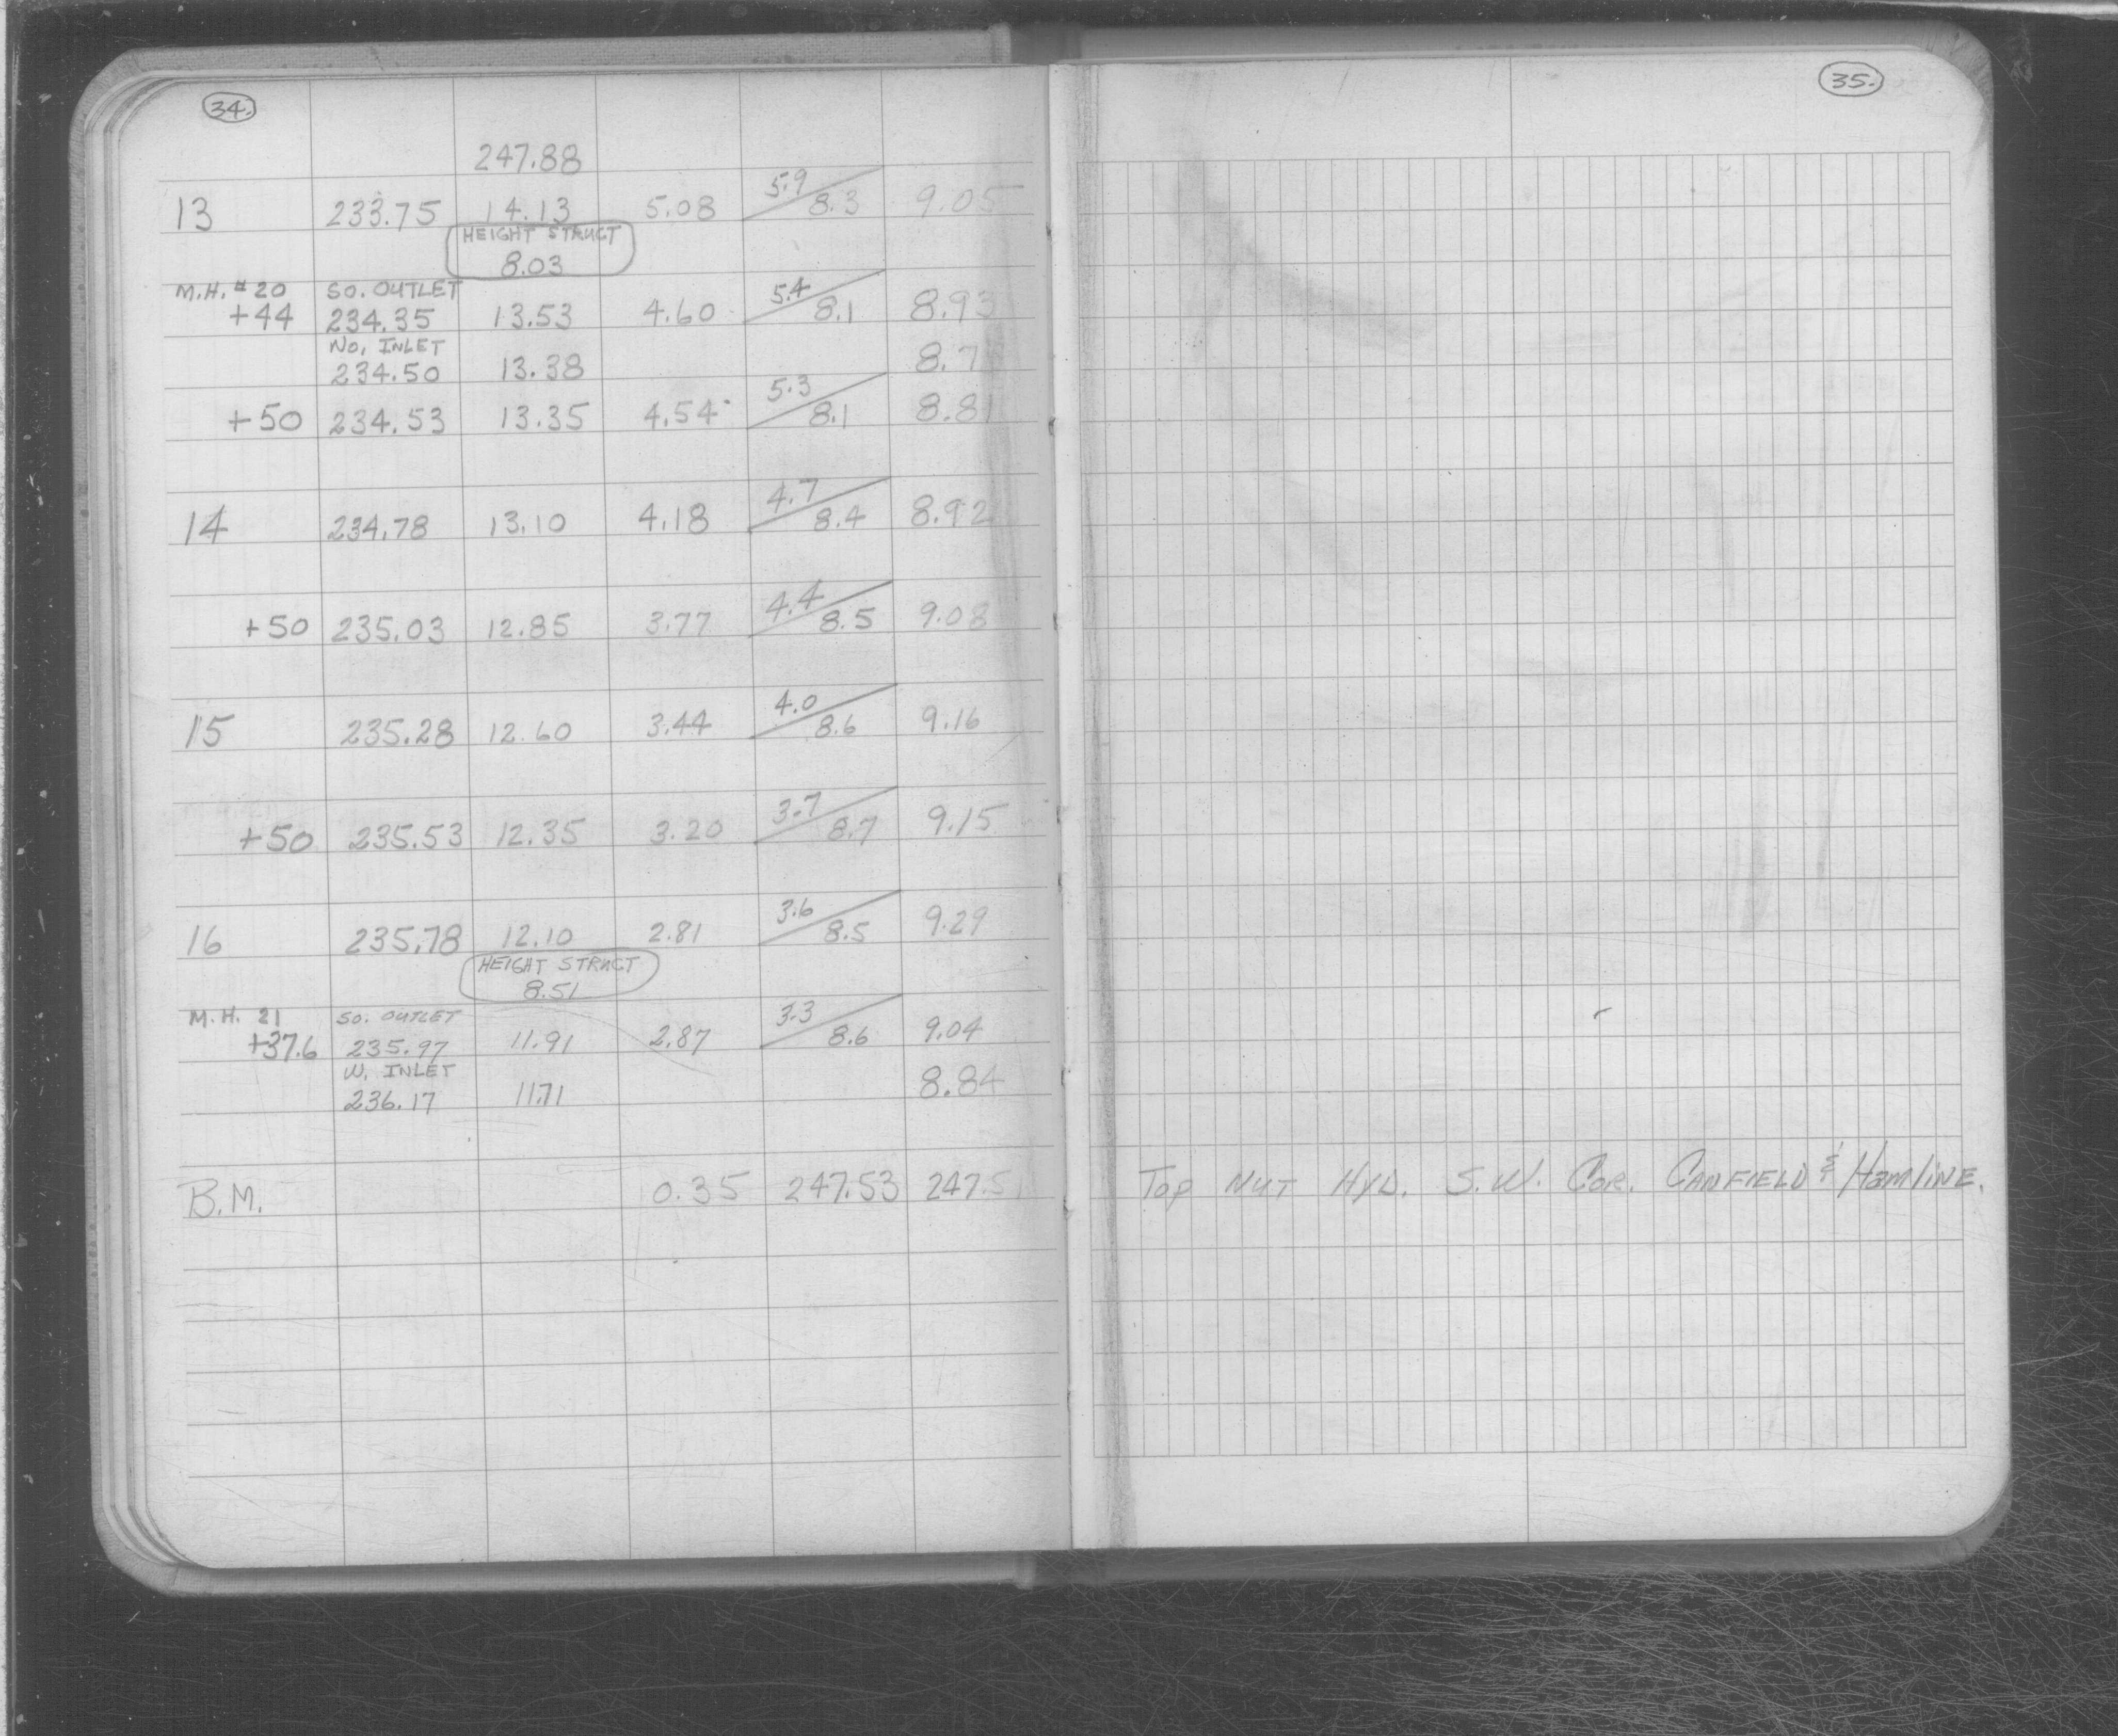 34.
247.88
13 233.75 14.13 5.08 5.9/8.3 9.05
HEIGHT STRUCT
8.03
M.H. #20 SO. OUTLET
+44 234.35 13.53 4.60 5.4/8.1 8.93
NO. INLET
234.50 13.38
+50 234.53 13.35 4.54 5.3/8.1 8.81
14 234.78 13.10 4.18 4.7/8.4 8.92
+50 235.03 12.85 3.77 4.4/8.5 9.08
15 235.28 12.60 3.44 4.0/8.6 9.16
+50 235.53 12.35 3.20 3.7/8.7 9.15
16 235.78 12.10 2.81 3.6/8.5 9.29
HEIGHT STRUCT
8.51
M.H. 21 SO. OUTLET
+37.6 235.97 11.91 2.87 3.3/8.6 9.04
W. INLET
236.17 11.71 8.84
B.M. 0.35 247.53
35.
Top NUT HYD. S.W. COR. CANFIELD & HamlinE.